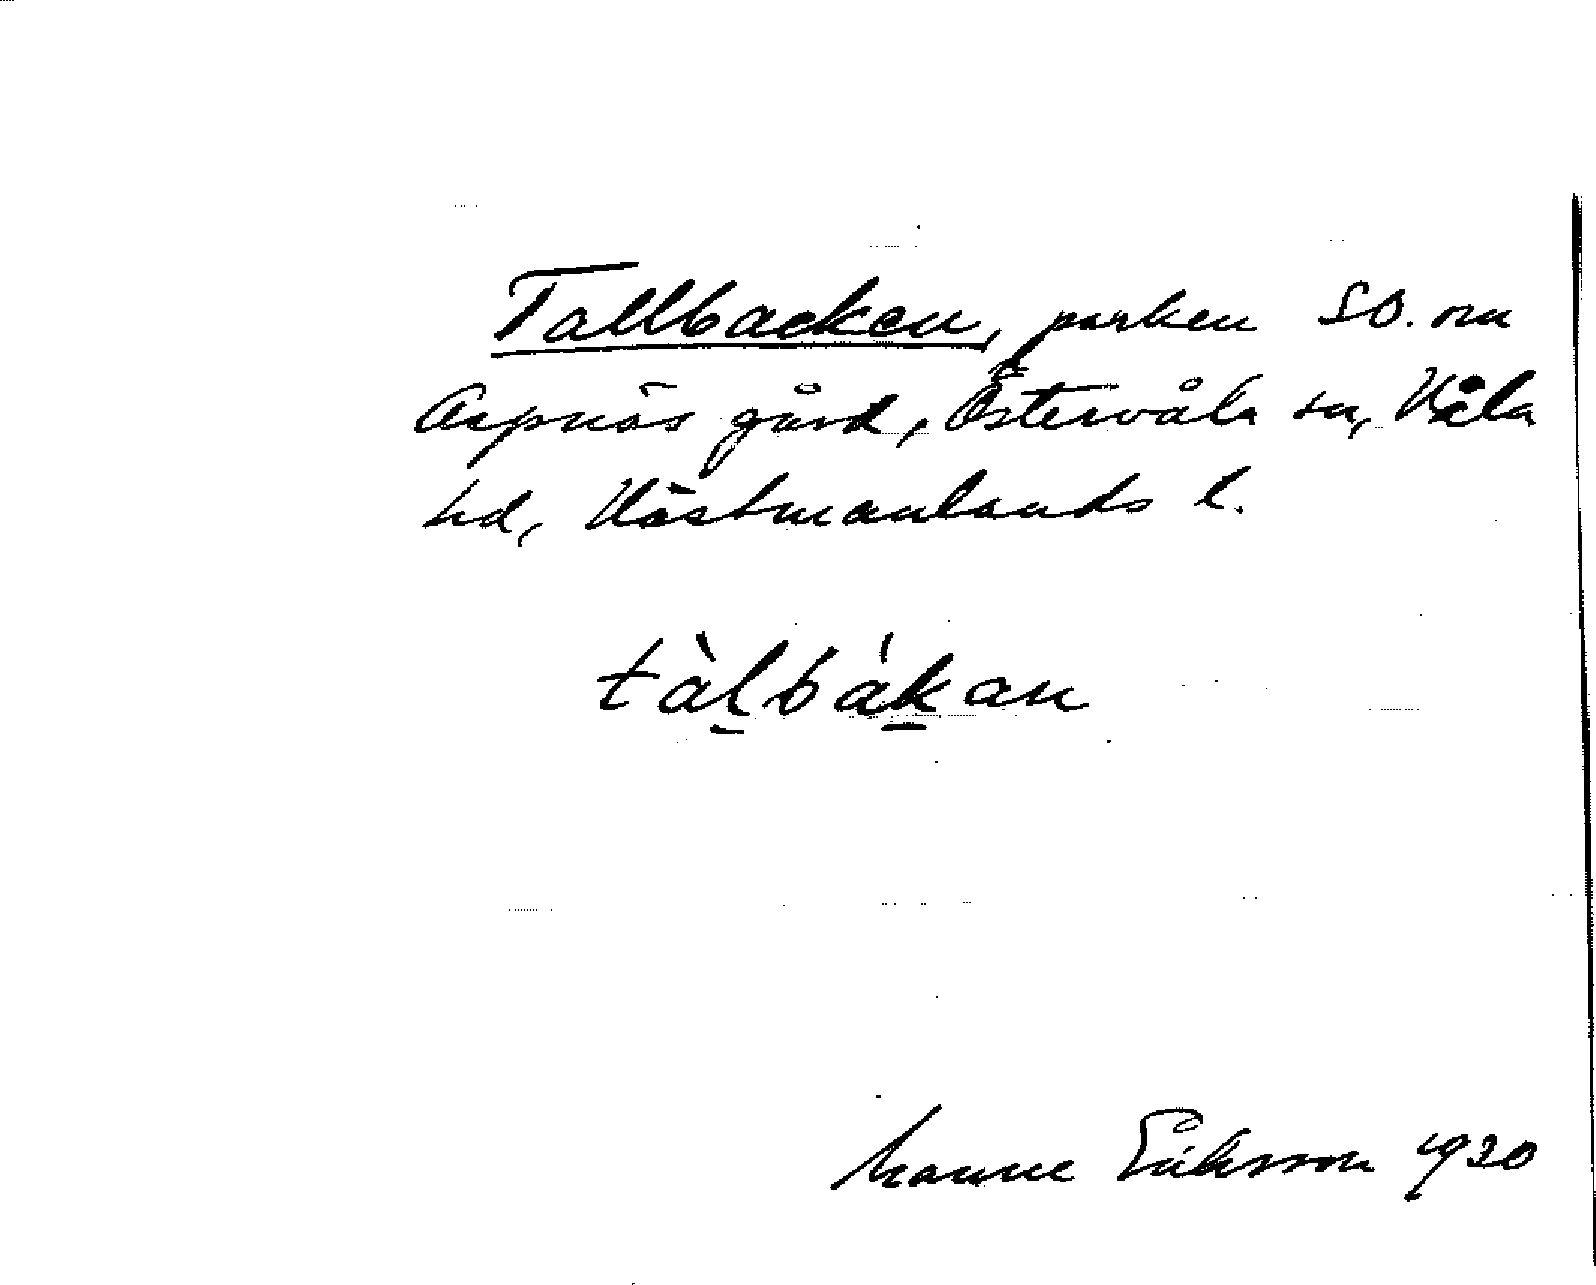 Tallbacken, parken SO. om
Aspnäs gård, Östervåla sn, Våla
hd, Västmanlands l.
tàl̠bák̠an
Manne Eriksson 1930